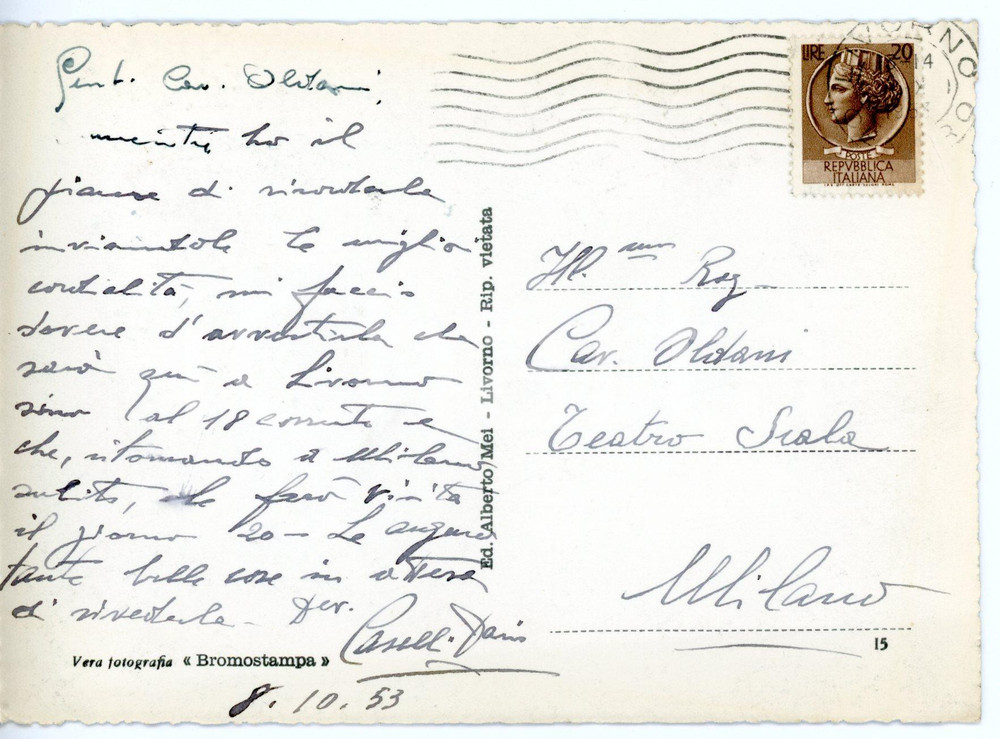 Gent. Cav. Oldani,
mentre ho il
piacere di ricordarla
inviandole le migliori
cordialità, mi faccio
dovere d'avvertirla che
sarò qui a Livorno
sino al 18 corrente e
che, ritornando a Milano
subito, le farò visita
il giorno 20 - Le auguro
tante belle cose in attesa
di rivederla. Dev.
Dario
8.10.53
Vera fotografia « Bromostampa »
Ed. Alberto Mei - Livorno - Rip. vietata
LIRE 20
POSTE
REPVBBLICA
ITALIANA
Ill.mo Rag.
Cav. Oldani
Teatro Scala
Milano
15